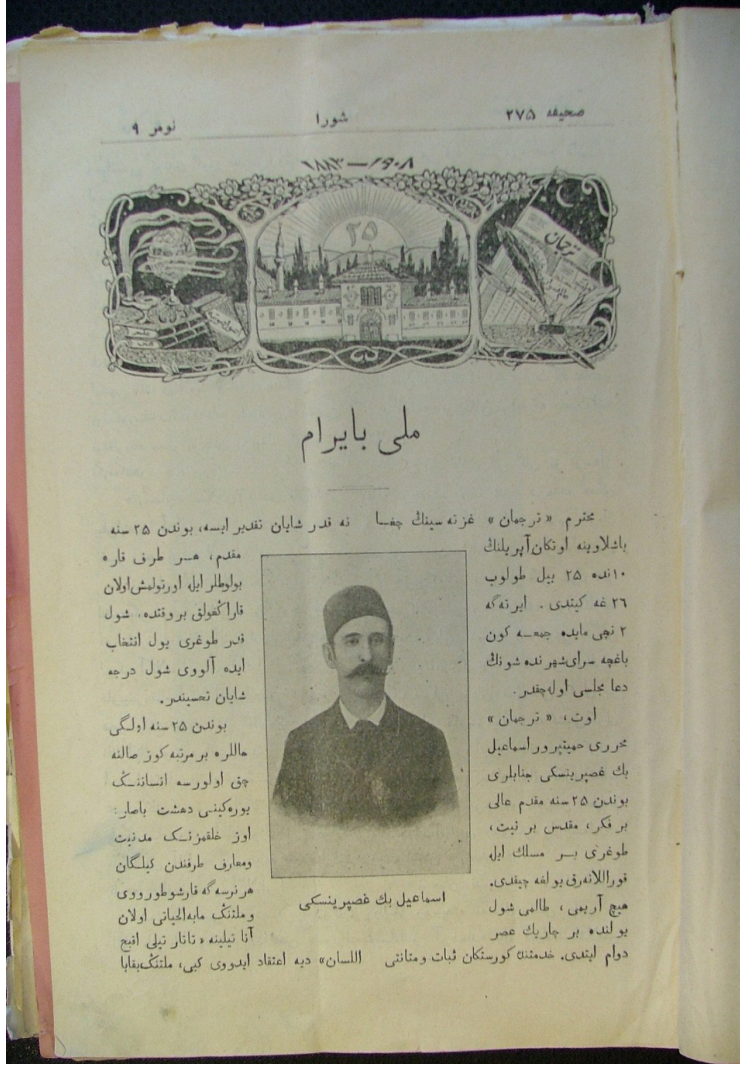 صحيفه ٢٧۵
شورا
نومر ٩
١٨٨٣—١٩٠٨
٢۵
ترجمان
ملى بايرام
محترم «ترجمان» غزته سينڭ چغا
باشلاوينه اوتكان آپريلنڭ
١٠نده ٢۵ ييل طولوب
٢٦ غه كيتدى. ايرته گه
٢ نچى مايده جمعه كون
باغچه سراى شهرنده شونڭ
دعا مجلسى اوله چقدر.
اوت، «ترجمان»
محررى حميتپرور اسماعيل
بك غصپرينسكى جنابلرى
بوندن ٢۵ سنه مقدم عالى
بر فكر، مقدس بر نيت،
طوغرى بر مسلك ايله
قوراللانه رق يولغه چيقدى.
هيچ آريمى، طالمى شول
يولنده بر چاريك عصر
دوام ايتدى. خدمتنده كورستكان ثبات ومتانتى
اسماعيل بك غصپرينسكى
نه قدر شايان تقدير ايسه، بوندن ٢۵ سنه
مقدم، هر طرف قاره
بولوطلر ايله اورتولمش اولان
قاراڭغولق بر وقتده، شول
قدر طوغرى يول انتخاب
ايده آلووى شول درجه
شايان تحسيندر.
بوندن ٢۵ سنه اولگى
حاللره بر مرتبه كوز صالنه
چق اولورسه انساننڭ
يوره كينى دهشت باصار:
اوز خلقمزنڭ مدنيت
ومعارف طرفندن كيلگان
هر نرسه گه قارشو طورووى
وملتنڭ مابه الحياتى اولان
آنا تيلينه «تاتار تيلى اقبح
اللسان» ديه اعتقاد ايدووى كبى، ملتنڭ بقابا